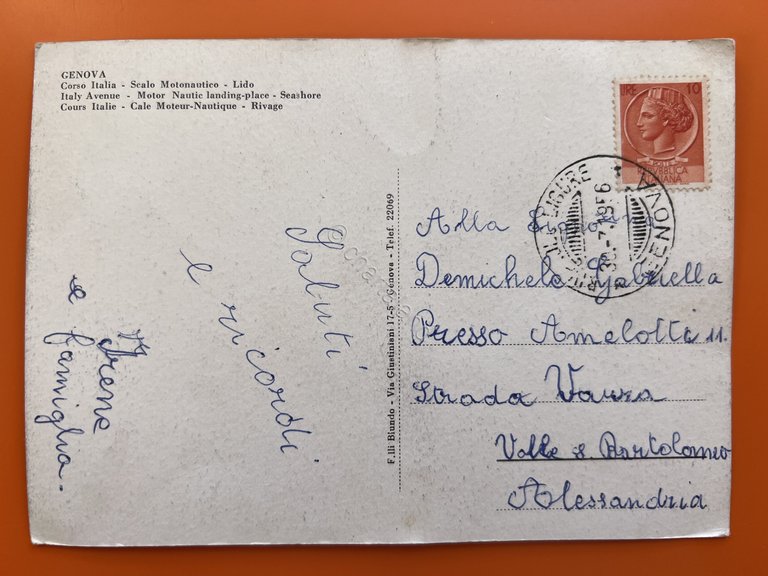 GENOVA
Corso Italia - Scalo Motonautico - Lido
Italy Avenue - Motor Nautic landing-place - Seashore
Cours Italie - Cale Moteur-Nautique - Rivage
LIRE 10
POSTE
REPVBBLICA
ITALIANA
LIGURE
GENOVA
-7.1956
Saluti
e ricordi
Irene
e famiglia.
F.lli Biundo - Via Giustiniani 17-5 - Genova - Telef. 22069
Alla
Demichele Gabriella
Presso Amelotti 11.
Strada
Valle S. Bartolomeo
Alessandria